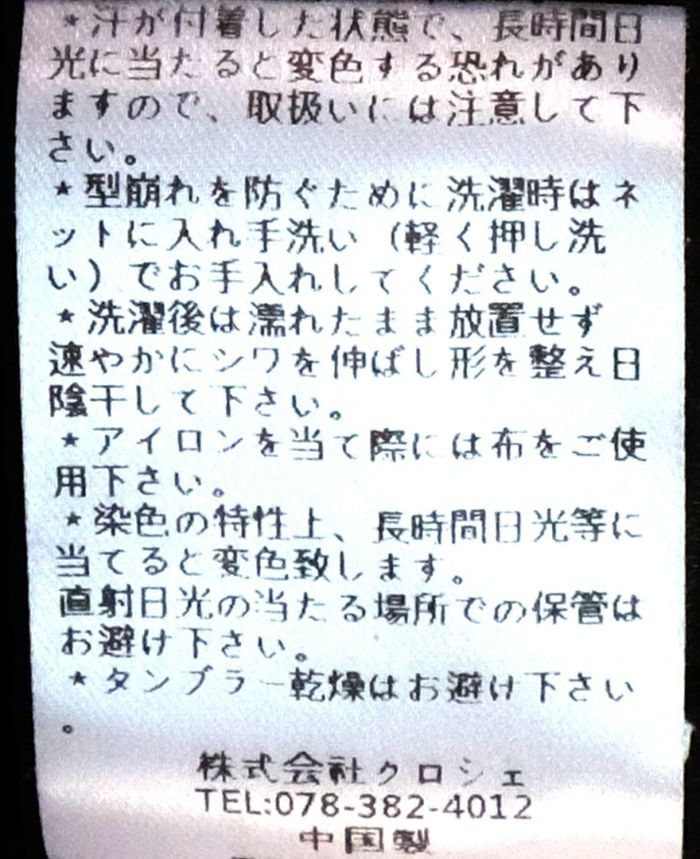 ★汗が付着した状態で、長時間日
光に当たると変色する恐れがあり
ますので、取扱いには注意して下
さい。
★型崩れを防ぐために洗濯時はネ
ットに入れ手洗い（軽く押し洗
い）でお手入れしてください。
★洗濯後は濡れたまま放置せず
速やかにシワを伸ばし形を整え日
陰干して下さい。
★アイロンを当て際には布をご使
用下さい。
★染色の特性上、長時間日光等に
当てると変色致します。
直射日光の当たる場所での保管は
お避け下さい。
★タンブラー乾燥はお避け下さい
。
株式会社クロシェ
TEL:078-382-4012
中国製